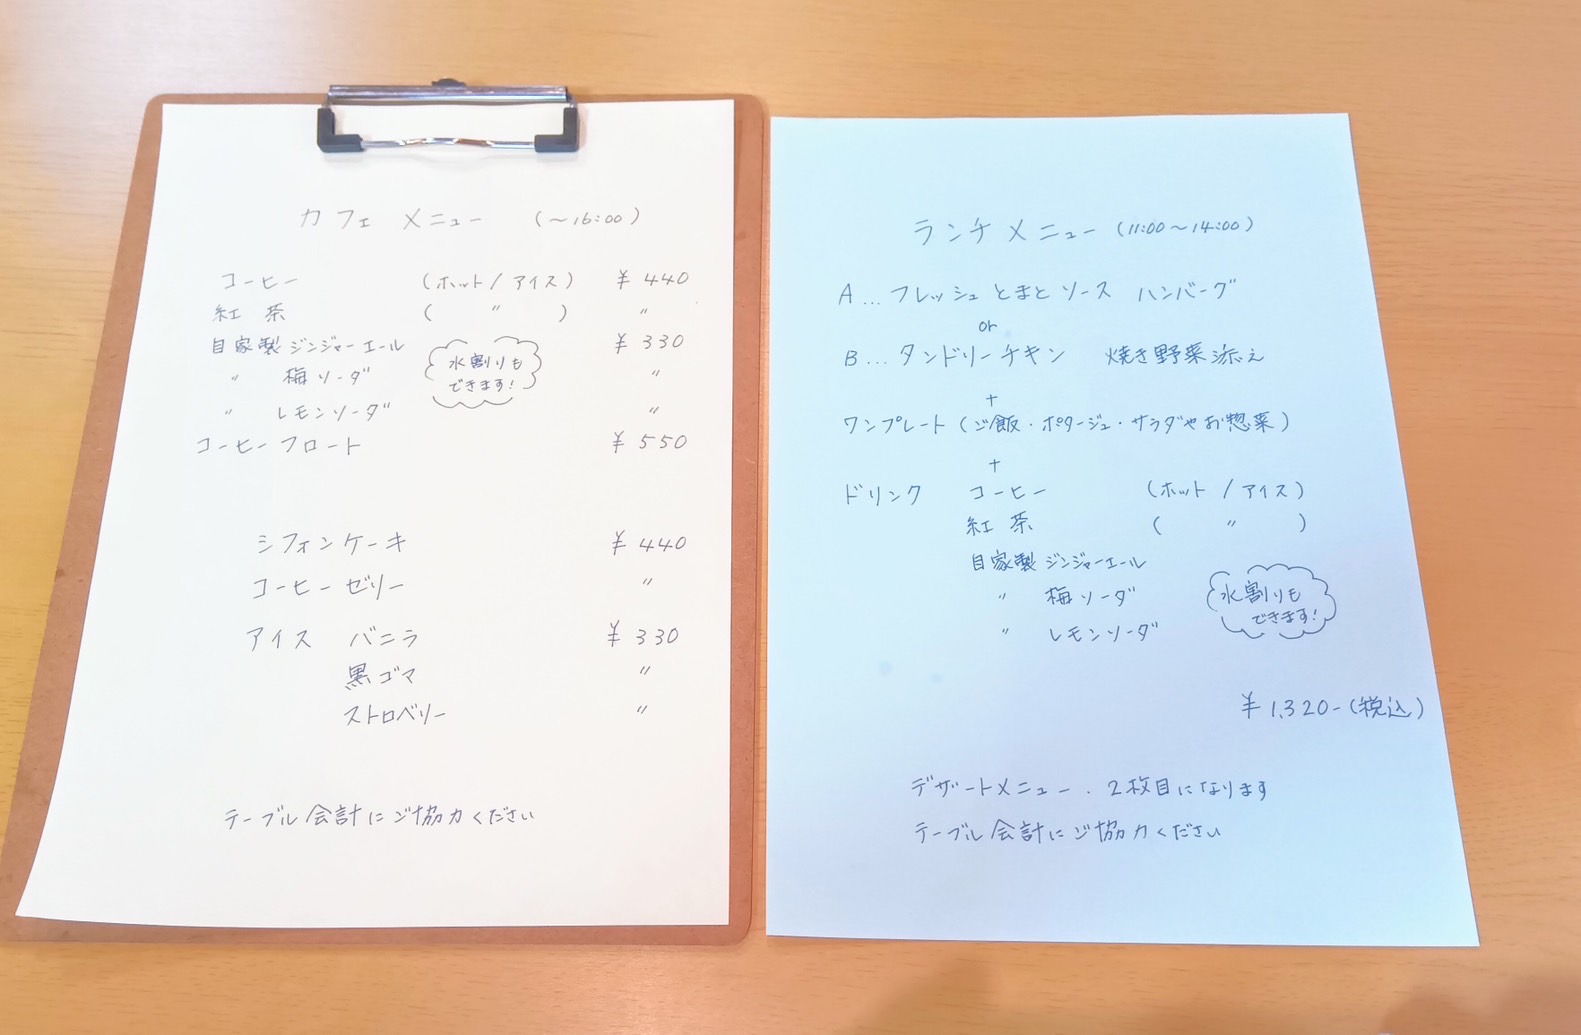 カフェ メニュー (～16:00)
コーヒー (ホット/アイス) ¥440
紅茶 ( 〃 ) 〃
自家製ジンジャーエール ¥330
〃 梅ソーダ 〃
〃 レモンソーダ 〃
水割りも
できます!
コーヒーフロート ¥550
シフォンケーキ ¥440
コーヒーゼリー 〃
アイス バニラ ¥330
黒ゴマ 〃
ストロベリー 〃
テーブル会計にご協力ください
ランチメニュー (11:00～14:00)
A... フレッシュとまとソース ハンバーグ
or
B... タンドリーチキン 焼き野菜添え
+
ワンプレート (ご飯・ポタージュ・サラダやお惣菜)
+
ドリンク コーヒー (ホット / アイス)
紅茶 ( 〃 )
自家製ジンジャーエール
〃 梅ソーダ
〃 レモンソーダ
水割りも
できます!
¥1,320-(税込)
デザートメニュー、2枚目になります
テーブル会計にご協力ください